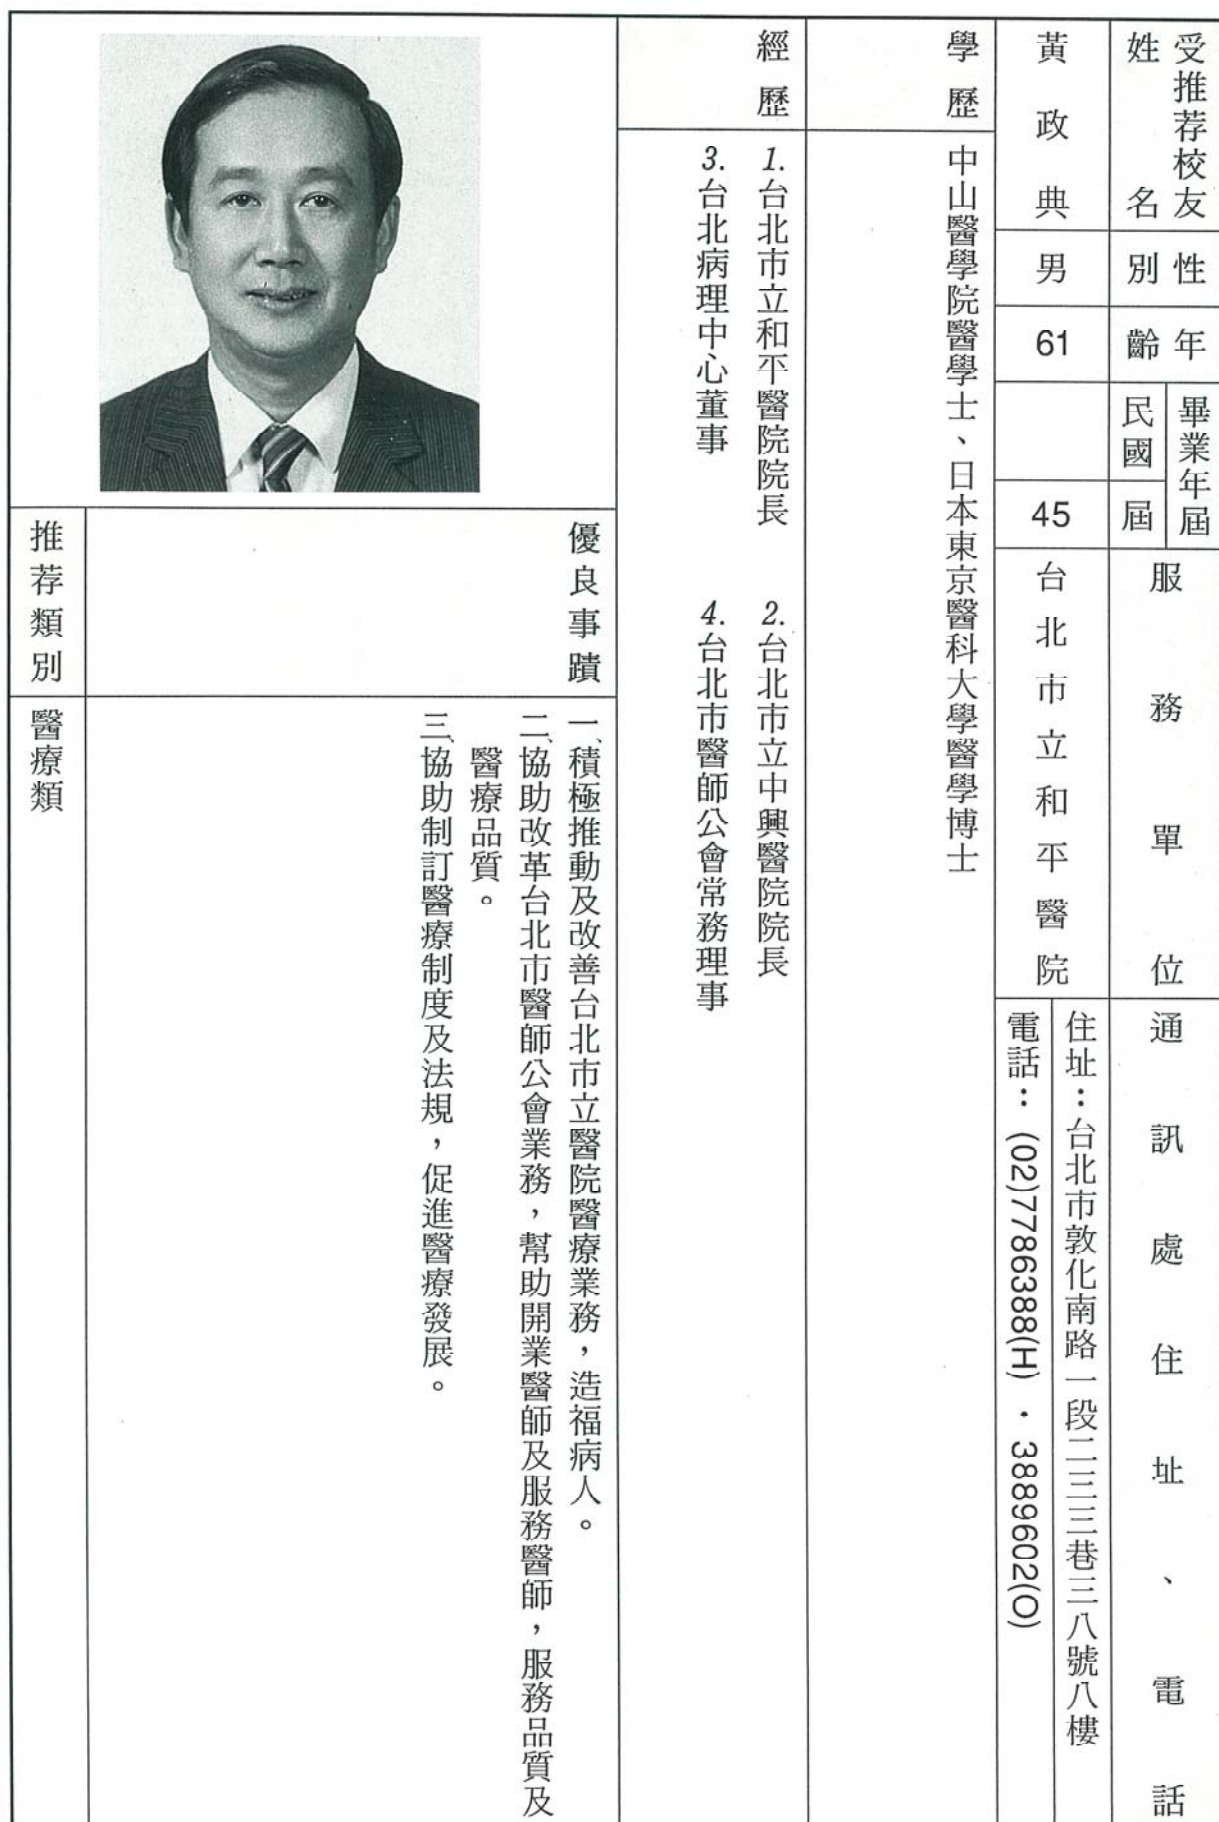 受推荐校友
姓名
黃政典
性別
男
年齡
61
畢業年屆
民國
屆
45
服務單位
台北市立和平醫院
通訊處住址、電話
住址：台北市敦化南路一段二三三巷三八號八樓
電話：(02)7786388(H)・3889602(O)
學歷
中山醫學院醫學士、日本東京醫科大學醫學博士
經歷
1.台北市立和平醫院院長　2.台北市立中興醫院院長
3.台北病理中心董事　4.台北市醫師公會常務理事
優良事蹟
一、積極推動及改善台北市立醫院醫療業務，造福病人。
二、協助改革台北市醫師公會業務，幫助開業醫師及服務醫師，服務品質及
醫療品質。
三、協助制訂醫療制度及法規，促進醫療發展。
推荐類別
醫療類